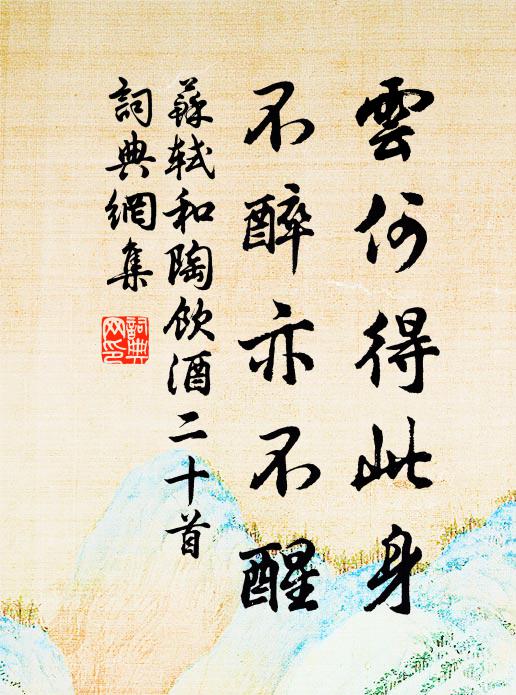 雲何得此身
不醉亦不醒
蘇軾和陶飲酒二十首
詞典網集
詞典网印